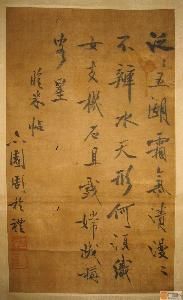 泛泛五湖霜氣清漫漫
不辨水天形何須織
女支機石且戲嫦娥稱
客星
臨米帖
六園彭於禮